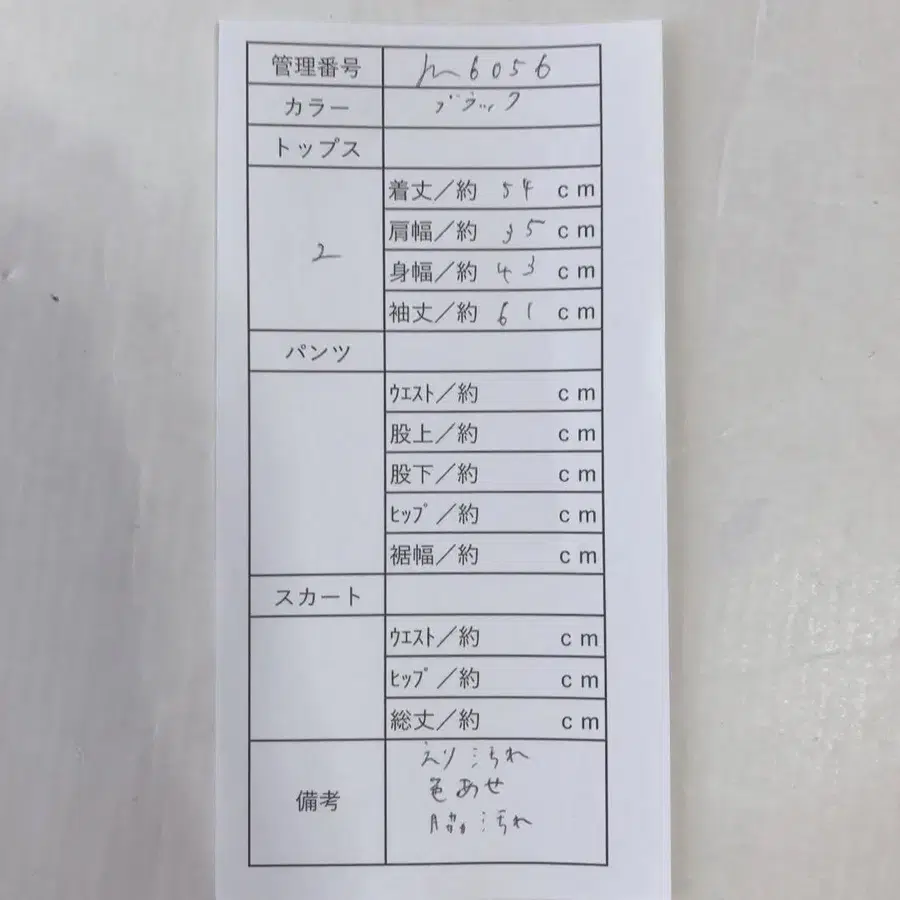 管理番号 m6056
カラー ブラック
トップス
2
着丈/約 54 cm
肩幅/約 35 cm
身幅/約 43 cm
袖丈/約 61 cm
パンツ
ｳｴｽﾄ/約 cm
股上/約 cm
股下/約 cm
ﾋｯﾌﾟ/約 cm
裾幅/約 cm
スカート
ｳｴｽﾄ/約 cm
ﾋｯﾌﾟ/約 cm
総丈/約 cm
備考
えり汚れ
色あせ
脇汚れ